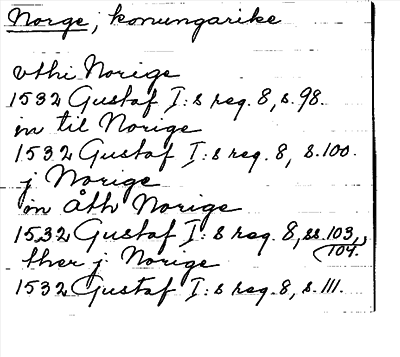 Norge, konungarike
vthi Norige
1532 Gustaf I:s reg. 8, s. 98.
in til Norige
1532 Gustaf I:s reg. 8, s. 100.
j Norige
in åth Norige
1532 Gustaf I:s reg. 8, ss. 103,
104.
ther j Norige
1532 Gustaf I:s reg. 8, s. 111.